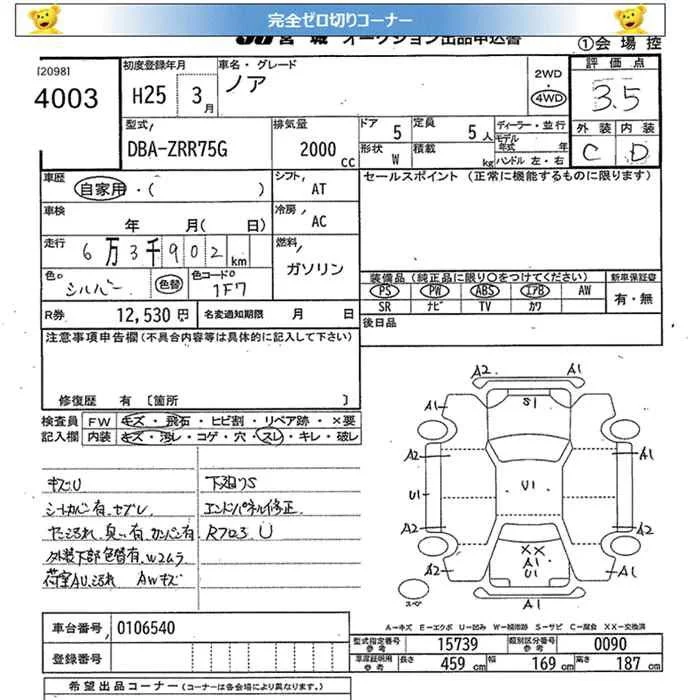 完全ゼロ切りコーナー
宮城 オークション出品申込書 ①会場控
[2098]
4003
初度登録年月 H25 3月
車名・グレード ノア
2WD・4WD
評価点 3.5
型式 DBA-ZRR75G
排気量 2000cc
ドア 5 定員 5人
形状 W 積載 kg
ディーラー・並行
モデル年式 年
ハンドル 左・右
外装 内装
C D
車歴 自家用・( )
シフト AT
セールスポイント (正常に機能するものに限ります)
車検 年 月( 日)
冷房 AC
走行 6万3千902km
燃料 ガソリン
色 シルバー 色替 色コード 1F7
装備品(純正品に限り○をつけてください) 新車保証書
PS PW ABS エアB AW 有・無
SR ナビ TV カワ
R券 12,530円 名変通知期限 月 日
後日品
注意事項申告欄(不具合内容等は具体的に記入して下さい)
修復歴 有〔箇所 〕
検査員 FW キズ・飛石・ヒビ割・リペア跡・×要
記入欄 内装 キズ・汚レ・コゲ・穴・スレ・キレ・破レ
キズU 下廻りS
シートカバー有、
エンドパネル修正
外装下部色替有、W2ムラ
荷室AU、汚れ AWキズ
A2 A1
A1 S1 A1
A2 A1
U1 U1 A1
A2 A2
A2 XX A1 U1 A2
スペア A1
A-キズ E-エクボ U-凹み W-補修跡 S-サビ C-腐食 XX-交換済
車台番号 0106540
型式指定番号 参考 15739 類別区分番号 参考 0090
登録番号
車庫証明用 参考 長さ 459cm 幅 169cm 高さ 187cm
希望出品コーナー (コーナーは各会場により異なります。)